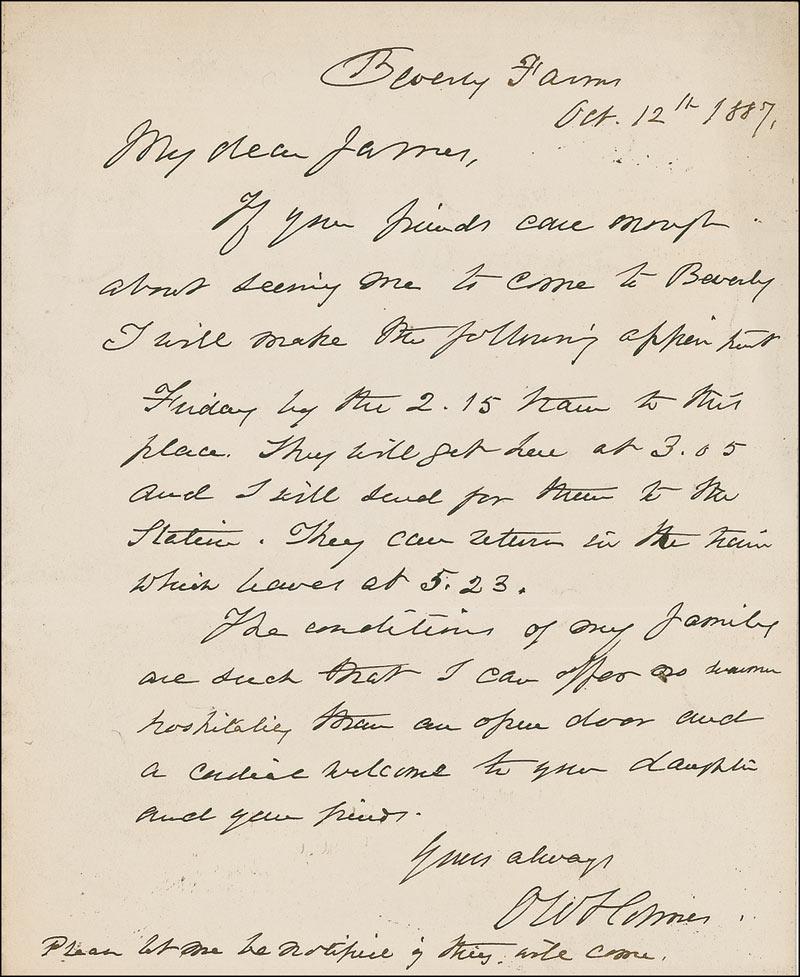 Beverly Farms
Oct. 12th 1887.
My dear James,
If your friends care enough
about seeing me to come to Beverly
I will make the following appointment
Friday by the 2.15 train to this
place. They will get here at 3.05
and I will send for them to the
Station. They can return in the train
which leaves at 5.23.
The conditions of my family
are such that I can offer no warmer
hospitality than an open door and
a cordial welcome to your daughter
and your friends.
Yours always
O W Holmes.
Please let me be notified if they will come.